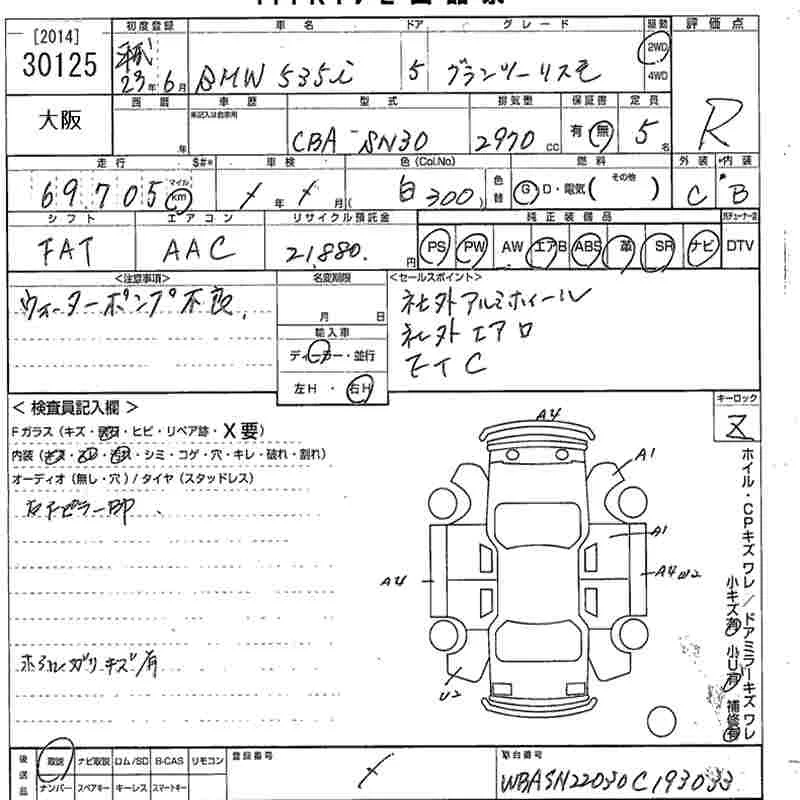 [2014]
30125
大阪
初度登録 車名 ドア グレード 駆動 評価点
平成 23年 6月 BMW 535i 5 グランツーリスモ 2WD 4WD R
西暦 車歴 型式 排気量 保証書 定員
年 未記入は自家用 CBA-SN30 2970 CC 有・無 5名
走行 S#* 車検 色(Col.No) 燃料 外装 内装
69,705 マイル km / 年 / 月( 白 300) 色替 G・D・電気( その他 ) C B
シフト エアコン リサイクル預託金 純正装備品
FAT AAC 21,880円 PS PW AW エアB ABS 革 SR ナビ DTV
<注意事項> 名変期限 <セールスポイント>
ウォーターポンプ不良, 月 日 社外アルミホイール
輸入車 社外エアロ
ディーラー・並行 ETC
左H・右H
キーロック
Z
<検査員記入欄>
Fガラス(キズ・ ・ヒビ・リペア跡・X要)
内装( ・シミ・コゲ・穴・キレ・破れ・割れ)
オーディオ(無し・穴)/タイヤ(スタッドレス)
A4
A1
A1
A4
A4 U2
U2
ホイルガリキズ有
ホイル・CPキズ ワレ/ドアミラーキズ ワレ
小キズ有 小U有 補修有
後送品 取説 ナビ取説 ロム/SD B-CAS リモコン 登録番号 / 車台番号
ナンバー スペアキー キーレス スマートキー WBASN22030C193033